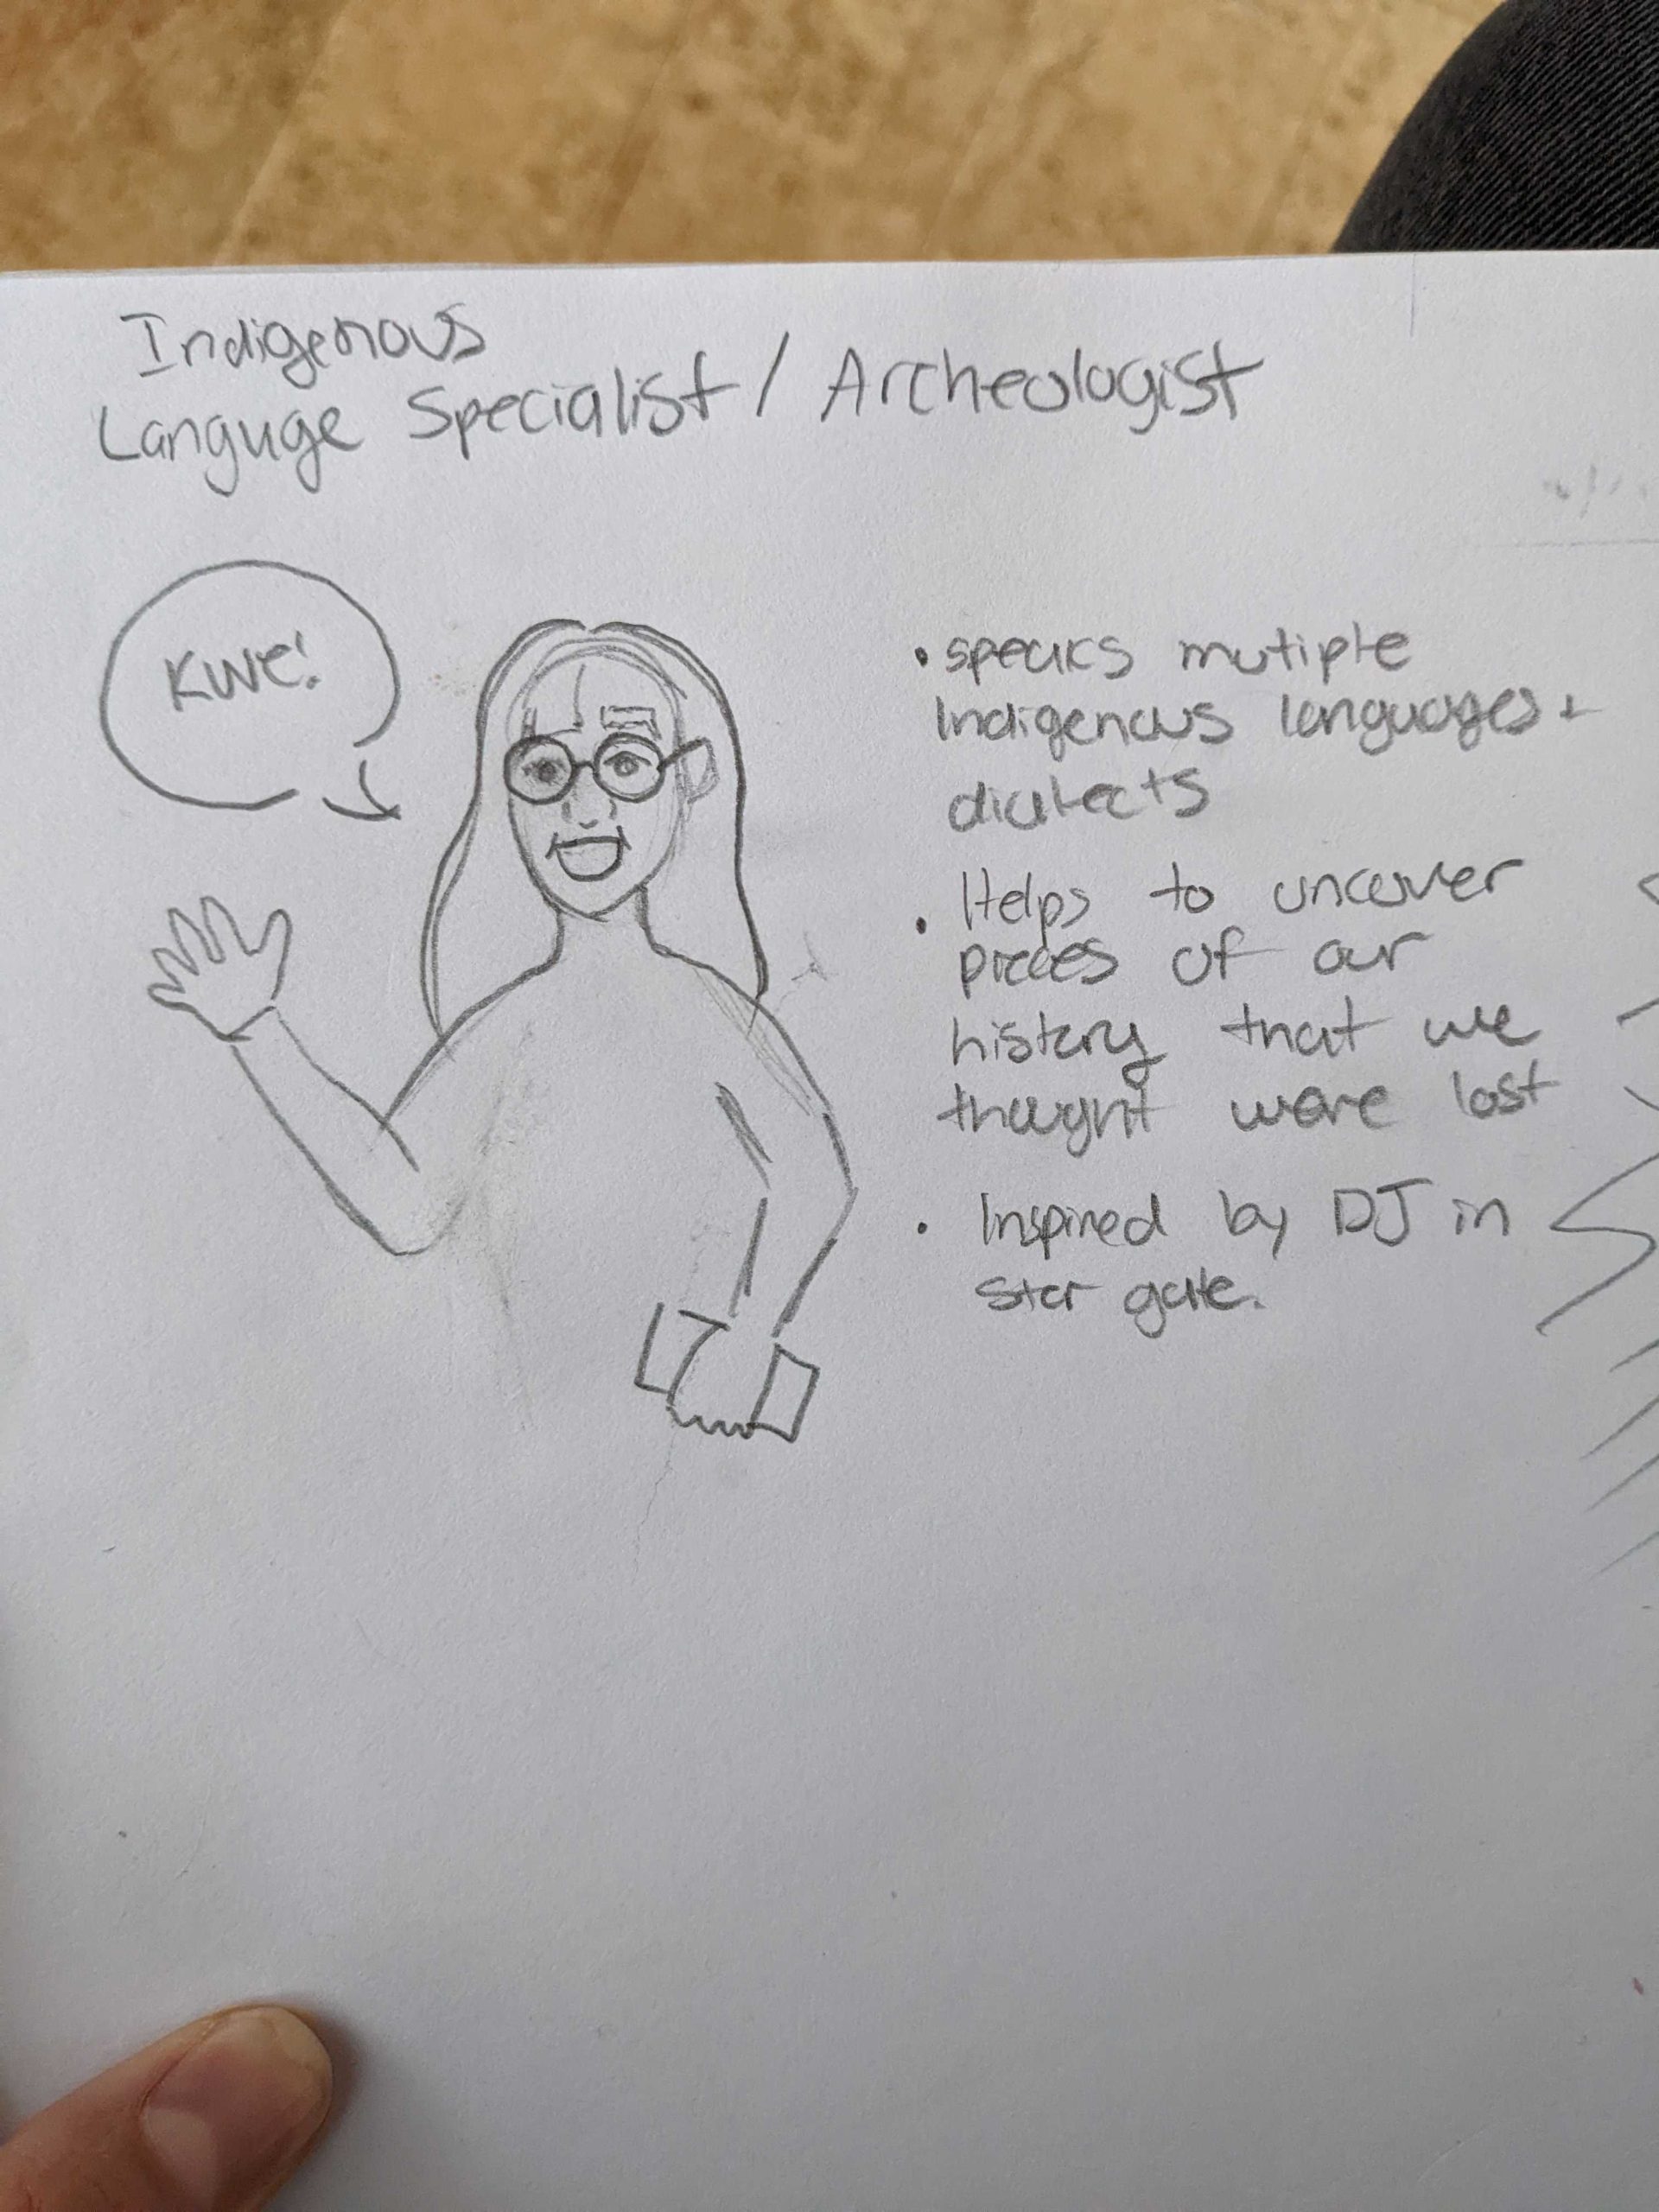 Indigenous
Languge Specialist / Archeologist
Kwe!
• speaks mutiple
Indigenous languages +
dialects
• Helps to uncover
pieces of our
history that we
thought were lost
• Inspired by DJ in
star gate.